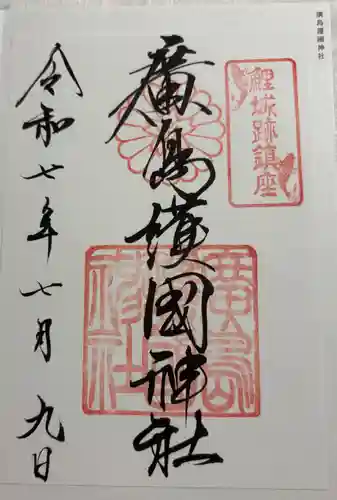 廣島護國神社
鯉城跡鎮座
廣島護國神社
令和七年七月九日
廣島護國神社